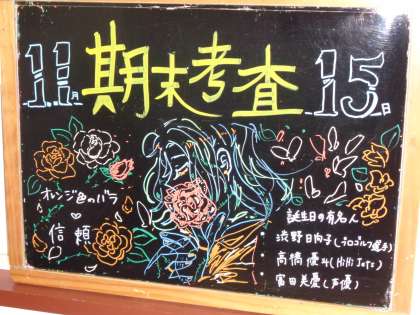 11月 期末考査 15日
オレンジ色のバラ
♡
信頼
誕生日の有名人
・渋野日向子(プロゴルフ選手)
・高橋優斗(HiHi Jets)
・富田美憂(声優)